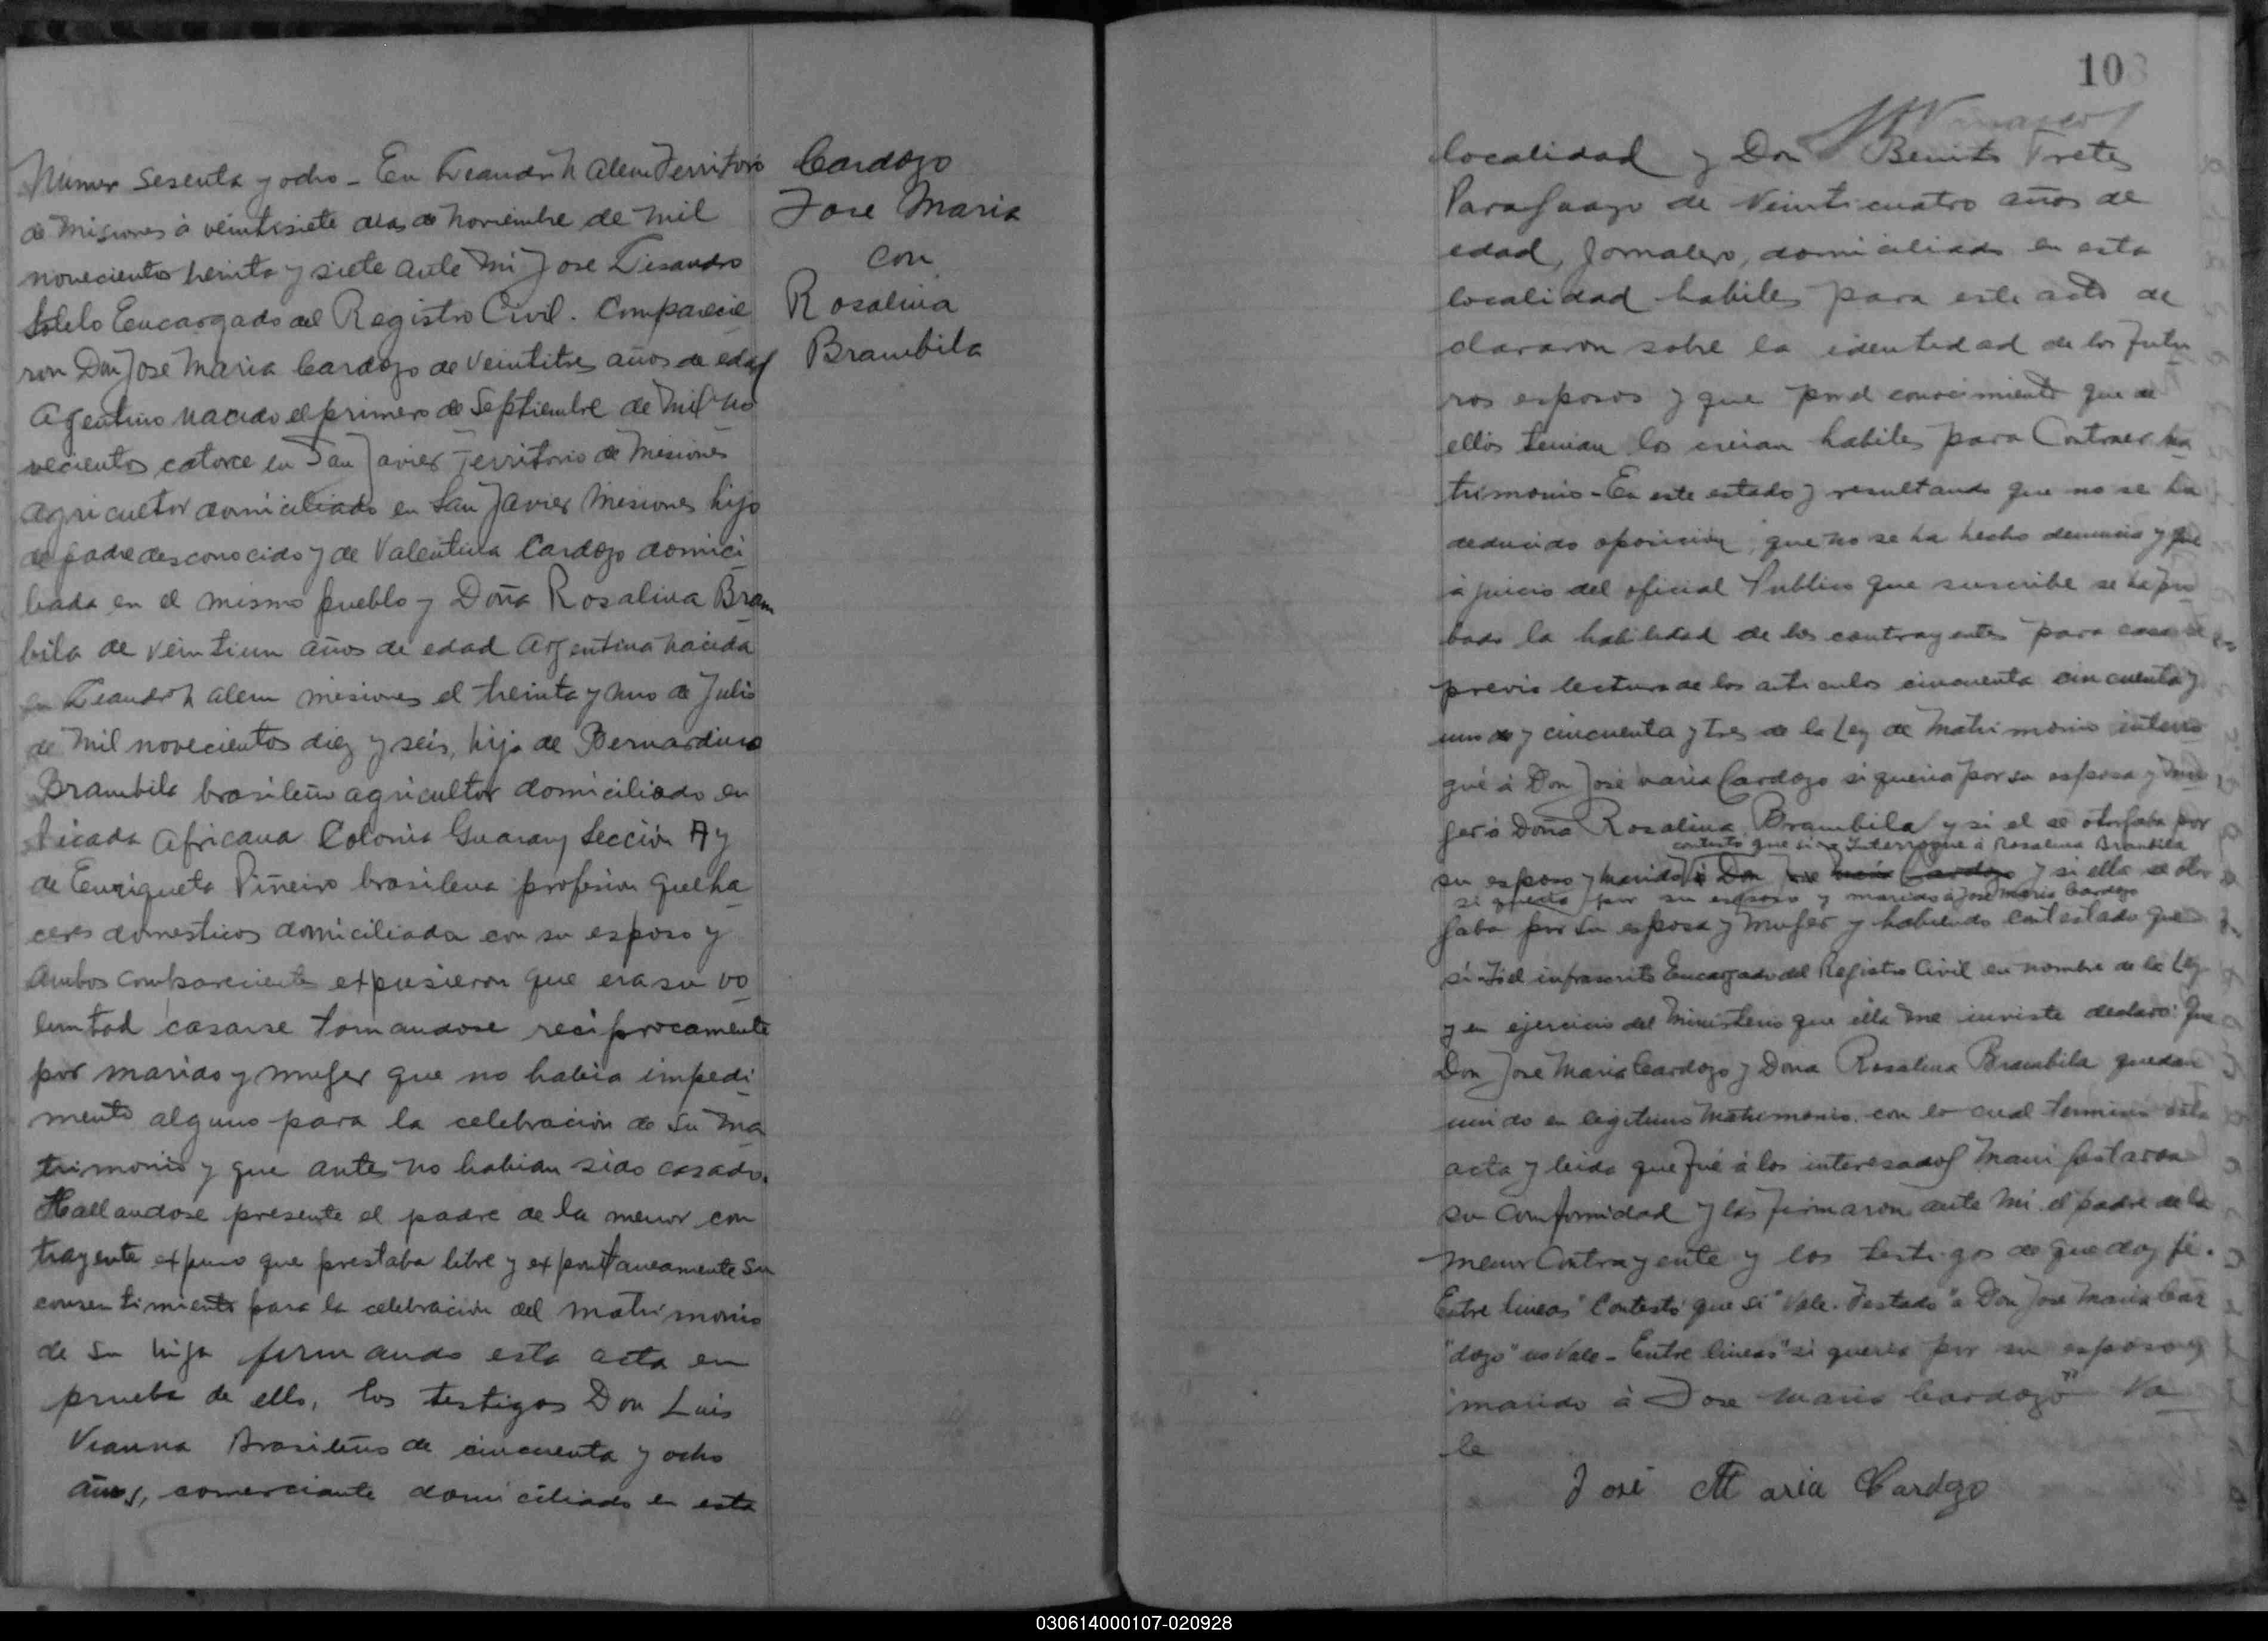 Numero Sesenta y ocho - En Leandro N Alem Territorio
de Misiones à veintisiete dias de Noviembre de Mil
novecientos treinta y siete ante Mi Jose Lisandro
Sotelo Encargado del Registro Civil. Comparecie
ron Don Jose Maria Cardozo de Veintitres años de edad
Argentino nacido el primero de Septiembre de Mil no
vecientos catorce en San Javier Territorio de Misiones
agricultor domiciliado en San Javier Misiones hijo
de padre desconocido y de Valentina Cardozo domici
liada en el mismo pueblo y Doña Rosalina Bram
bila de veintiun años de edad Argentina nacida
en Leandro N Alem Misiones el treinta y uno de Julio
de Mil novecientos diez y seis, hija de Bernardino
Brambila brasileño agricultor domiciliado en
Picada Africana Colonia Guarany Sección A y
de Enriqueta Piñeiro brasilena profesion quelha
ceres domesticos domiciliada con su esposo y
Ambos comparecientes expusieron que era su vo
luntad casarse tomandose reciprocamente
por marido y mujer que no habia impedi
mento alguno para la celebracion de su Ma
trimonio y que antes no habian sido casados.
Hallandose presente el padre de la menor con
trayente expuso que prestaba libre y expontaneamente su
consentimiento para la celebración del matrimonio
de su hija firmando esta acta en
prueba de ello, los testigos Don Luis
Vianna Brasileño de cincuenta y ocho
años, comerciante domiciliado en esta
Cardozo
Jose Maria
con
Rosalina
Brambila
103
localidad y Don Benito Fretes
Paraguayo de Veinticuatro años de
edad, Jornalero, domiciliado en esta
localidad habiles para este acto de
clararon sobre la identidad de los futu
ros esposos y que por el conocimiento que de
ellos tenian los creian habiles para Contraer Ma
trimonio - En este estado y resultando que no se ha
deducido oposición, que no se ha hecho denuncia y que
à juicio del oficial Publico que suscribe se ha pro
bado la habilidad de los contrayentes para casarse
previo lectura de los articulos cincuenta cincuenta y
uno y cincuenta y tres de la Ley de Matrimonio interro
gué à Don José Maria Cardozo si queria por su esposa y mu
jer à Doña Rosalina Brambila y si el se otorgaba por
contesto que si e Interrogue à Rosalina Brambila
su esposo y marido à Don Jose Maria Cardozo y si ella se otor
si queria por su esposo y marido à Jose Maria Cardozo
gaba por su esposa y mujer y habiendo contestado que
si Yo el infrascrito Encargado del Registro Civil en nombre de la Ley
y en ejercicio del Ministerio que ella me inviste declaro: Que
Don Jose Maria Cardozo y Dona Rosalina Brambila quedan
unido en legitimo Matrimonio. con lo cual termino esta
acta y leida que fué à los interesados Manifestaron
su Conformidad y las firmaron ante Mi el padre de la
menor Contrayente y los testigos de que doy fé.
Entre lineas "Contestó que si" Vale. Testado "a Don Jose Maria Car
"dozo" no Vale - Entre lineas "si queria por su esposo y
marido à Jose Maria Cardozo" Va
le
José Maria Cardozo
030614000107-020928